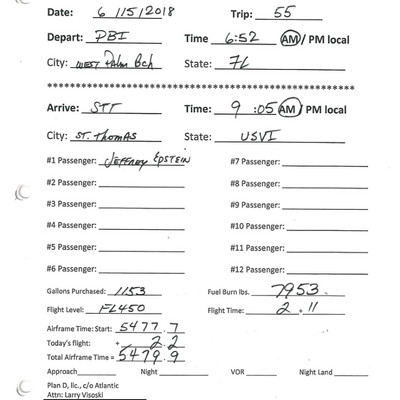 Date: 6/15/2018 Trip: 55
Depart: PBI Time 6:52 AM/ PM local
City: West Palm Bch State: FL
****************************************************
Arrive: STT Time: 9 :05 AM/ PM local
City: ST. THOMAS State: USVI
#1 Passenger: JEFFREY EPSTEIN #7 Passenger:
#2 Passenger: #8 Passenger:
#3 Passenger: #9 Passenger:
#4 Passenger: #10 Passenger:
#5 Passenger: #11 Passenger:
#6 Passenger: #12 Passenger:
Gallons Purchased: 1153 Fuel Burn lbs. 7953
Flight Level: FL450 Flight Time: 2.11
Airframe Time: Start: 5477.7
Today's flight: + 2.2
Total Airframe Time = 5479.9
Approach Night VOR Night Land
Plan D, llc., c/o Atlantic
Attn: Larry Visoski